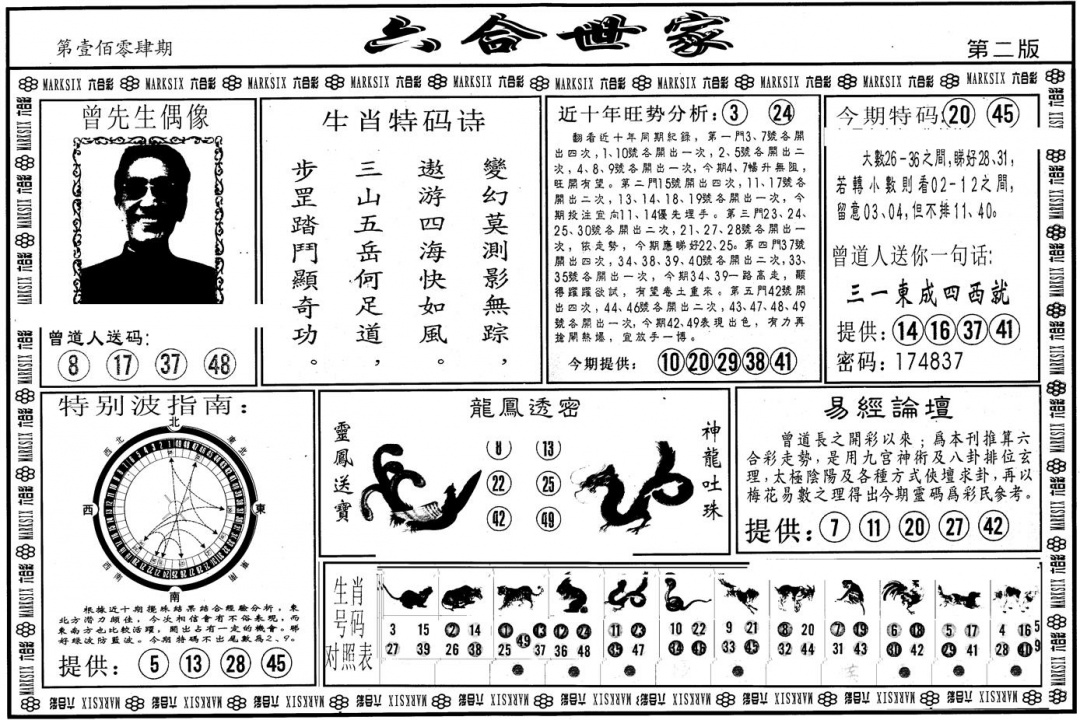 第壹佰零肆期
六合世家
第二版
MARKSIX 六合彩 MARKSIX 六合彩 MARKSIX 六合彩 MARKSIX 六合彩 MARKSIX 六合彩 MARKSIX 六合彩 MARKSIX 六合彩 MARKSIX 六合彩 MARKSIX 六合彩 MARKSIX 六合彩
曾先生偶像
曾道人送码:
8 17 37 48
生肖特码诗
變幻莫測影無踪，
遨游四海快如風。
三山五岳何足道，
步罡踏鬥顯奇功。
近十年旺势分析: 3 24
翻看近十年同期紀錄，第一門3、7號各開
出四次，1、10號各開出一次，2、5號各開出二
次，4、8、9號各開出一次，今期4、7暢升無阻，
旺開有望。第二門15號開出四次，11、17號各
開出二次，13、14、18、19號各開出一次，今
期投注宜向11、14優先埋手。第三門23、24、
25、30號各開出二次，21、27、28號各開出一
次，依走勢，今期應睇好22、25。第四門37號
開出四次，34、38、39、40號各開出二次，33、
35號各開出一次，今期34、39一路高走，顯
得躍躍欲試，有望卷土重来。第五門42號開
出四次，44、46號各開出二次，43、47、48、49
號各開出一次，今期42、49表現出色，有力再
搶開熱爆，宜放手一博。
今期提供: 10 20 29 38 41
今期特码: 20 45
大數26-36之間，睇好28、31，
若轉小數則看02-12之間，
留意03、04，但不排11、40。
曾道人送你一句话:
三一東成四西就
提供: 14 16 37 41
密码: 174837
特别波指南:
北
西北 東北
西 東
西南 東南
南
根據近十期攪珠結果結合經驗分析，東
北方潛力頗佳，今次相信會有不俗表現，西
東南方也比較活躍，開出占有一定的機會。睇
好绿波防藍波。今期特碼不出尾數為2、9。
提供: 5 13 28 45
龍鳳透密
靈鳳送寶
8 13
22 25
42 49
神龍吐珠
易經論壇
曾道長之開彩以來；爲本刊推算六
合彩走勢，是用九宫神術及八卦排位玄
理，太極陰陽及各種方式俠壇求卦，再以
梅花易數之理得出今期靈碼爲彩民參考。
提供: 7 11 20 27 42
生肖号码对照表
3 15 2 14 1 13 12 24 11 23 10 22 9 21 8 20 7 19 6 18 5 17 4 16 5
27 39 26 38 25 49 37 36 48 35 47 34 46 33 45 32 44 31 43 30 42 29 41 28 41 9